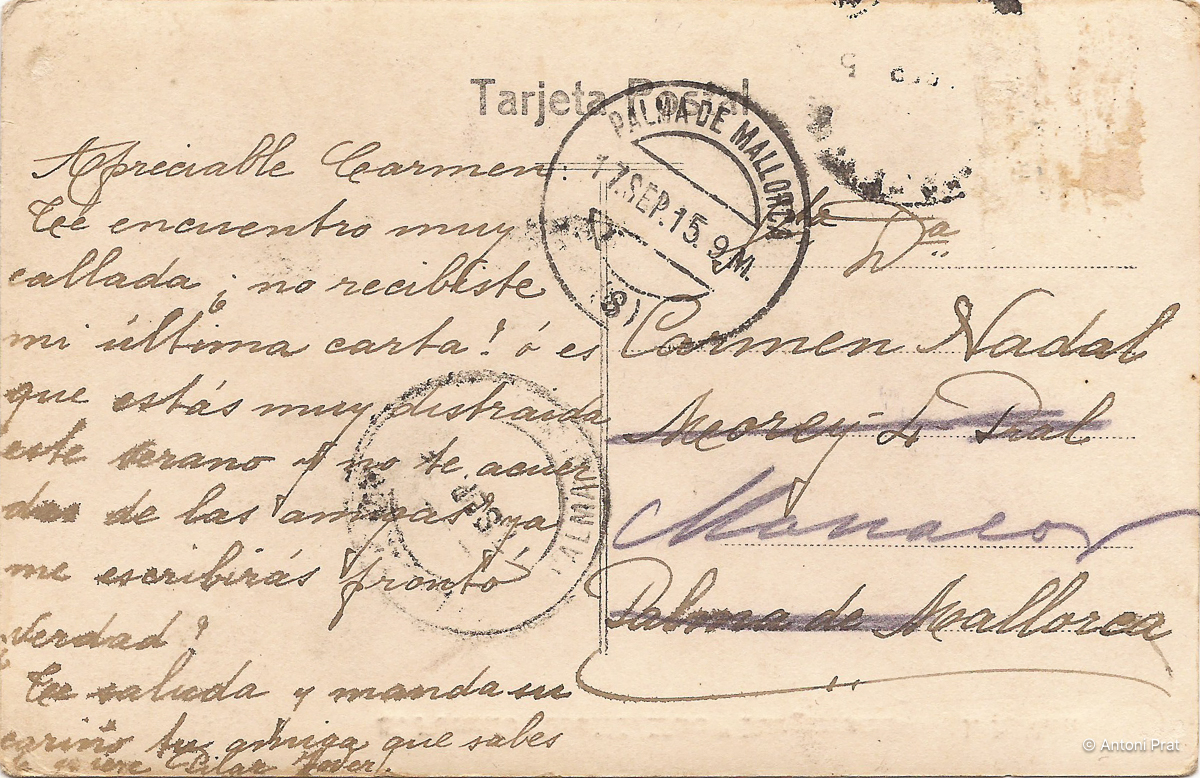 Tarjeta Postal
PALMA DE MALLORCA
17.SEP.15.9M.
(8)
PALMA
Apreciable Carmen:
Te encuentro muy
callada ¿no recibiste
mi última carta? ó es
que estás muy distraida
este verano y no te acuer
das de las amigas ya
me escribirás prontó
¿verdad?
Te saluda y manda su
cariño tu amiga que sabes
te quiere Pilar
Da
Carmen Nadal
Morey 4 Pral
Manacor
Palma de Mallorca
© Antoni Prat